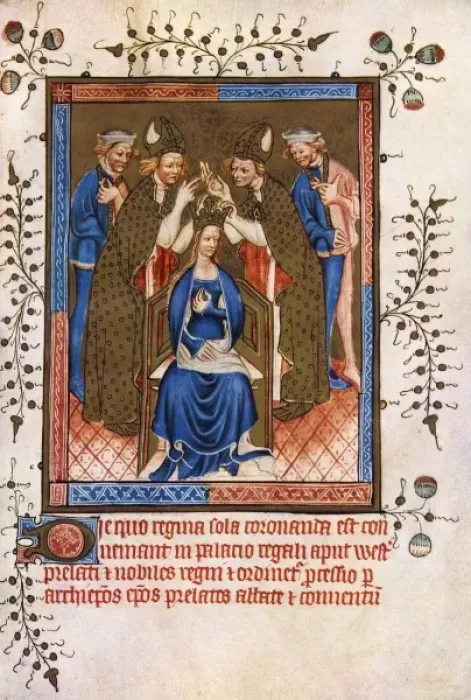 Die quo regina sola coronanda est con
ueniant in palacio regali apud west
prelati ⁊ nobiles regni ⁊ ordinet᷑ ꝓcessio ꝑ
archiep̄os ep̄os prelatos abbate ⁊ conuentū